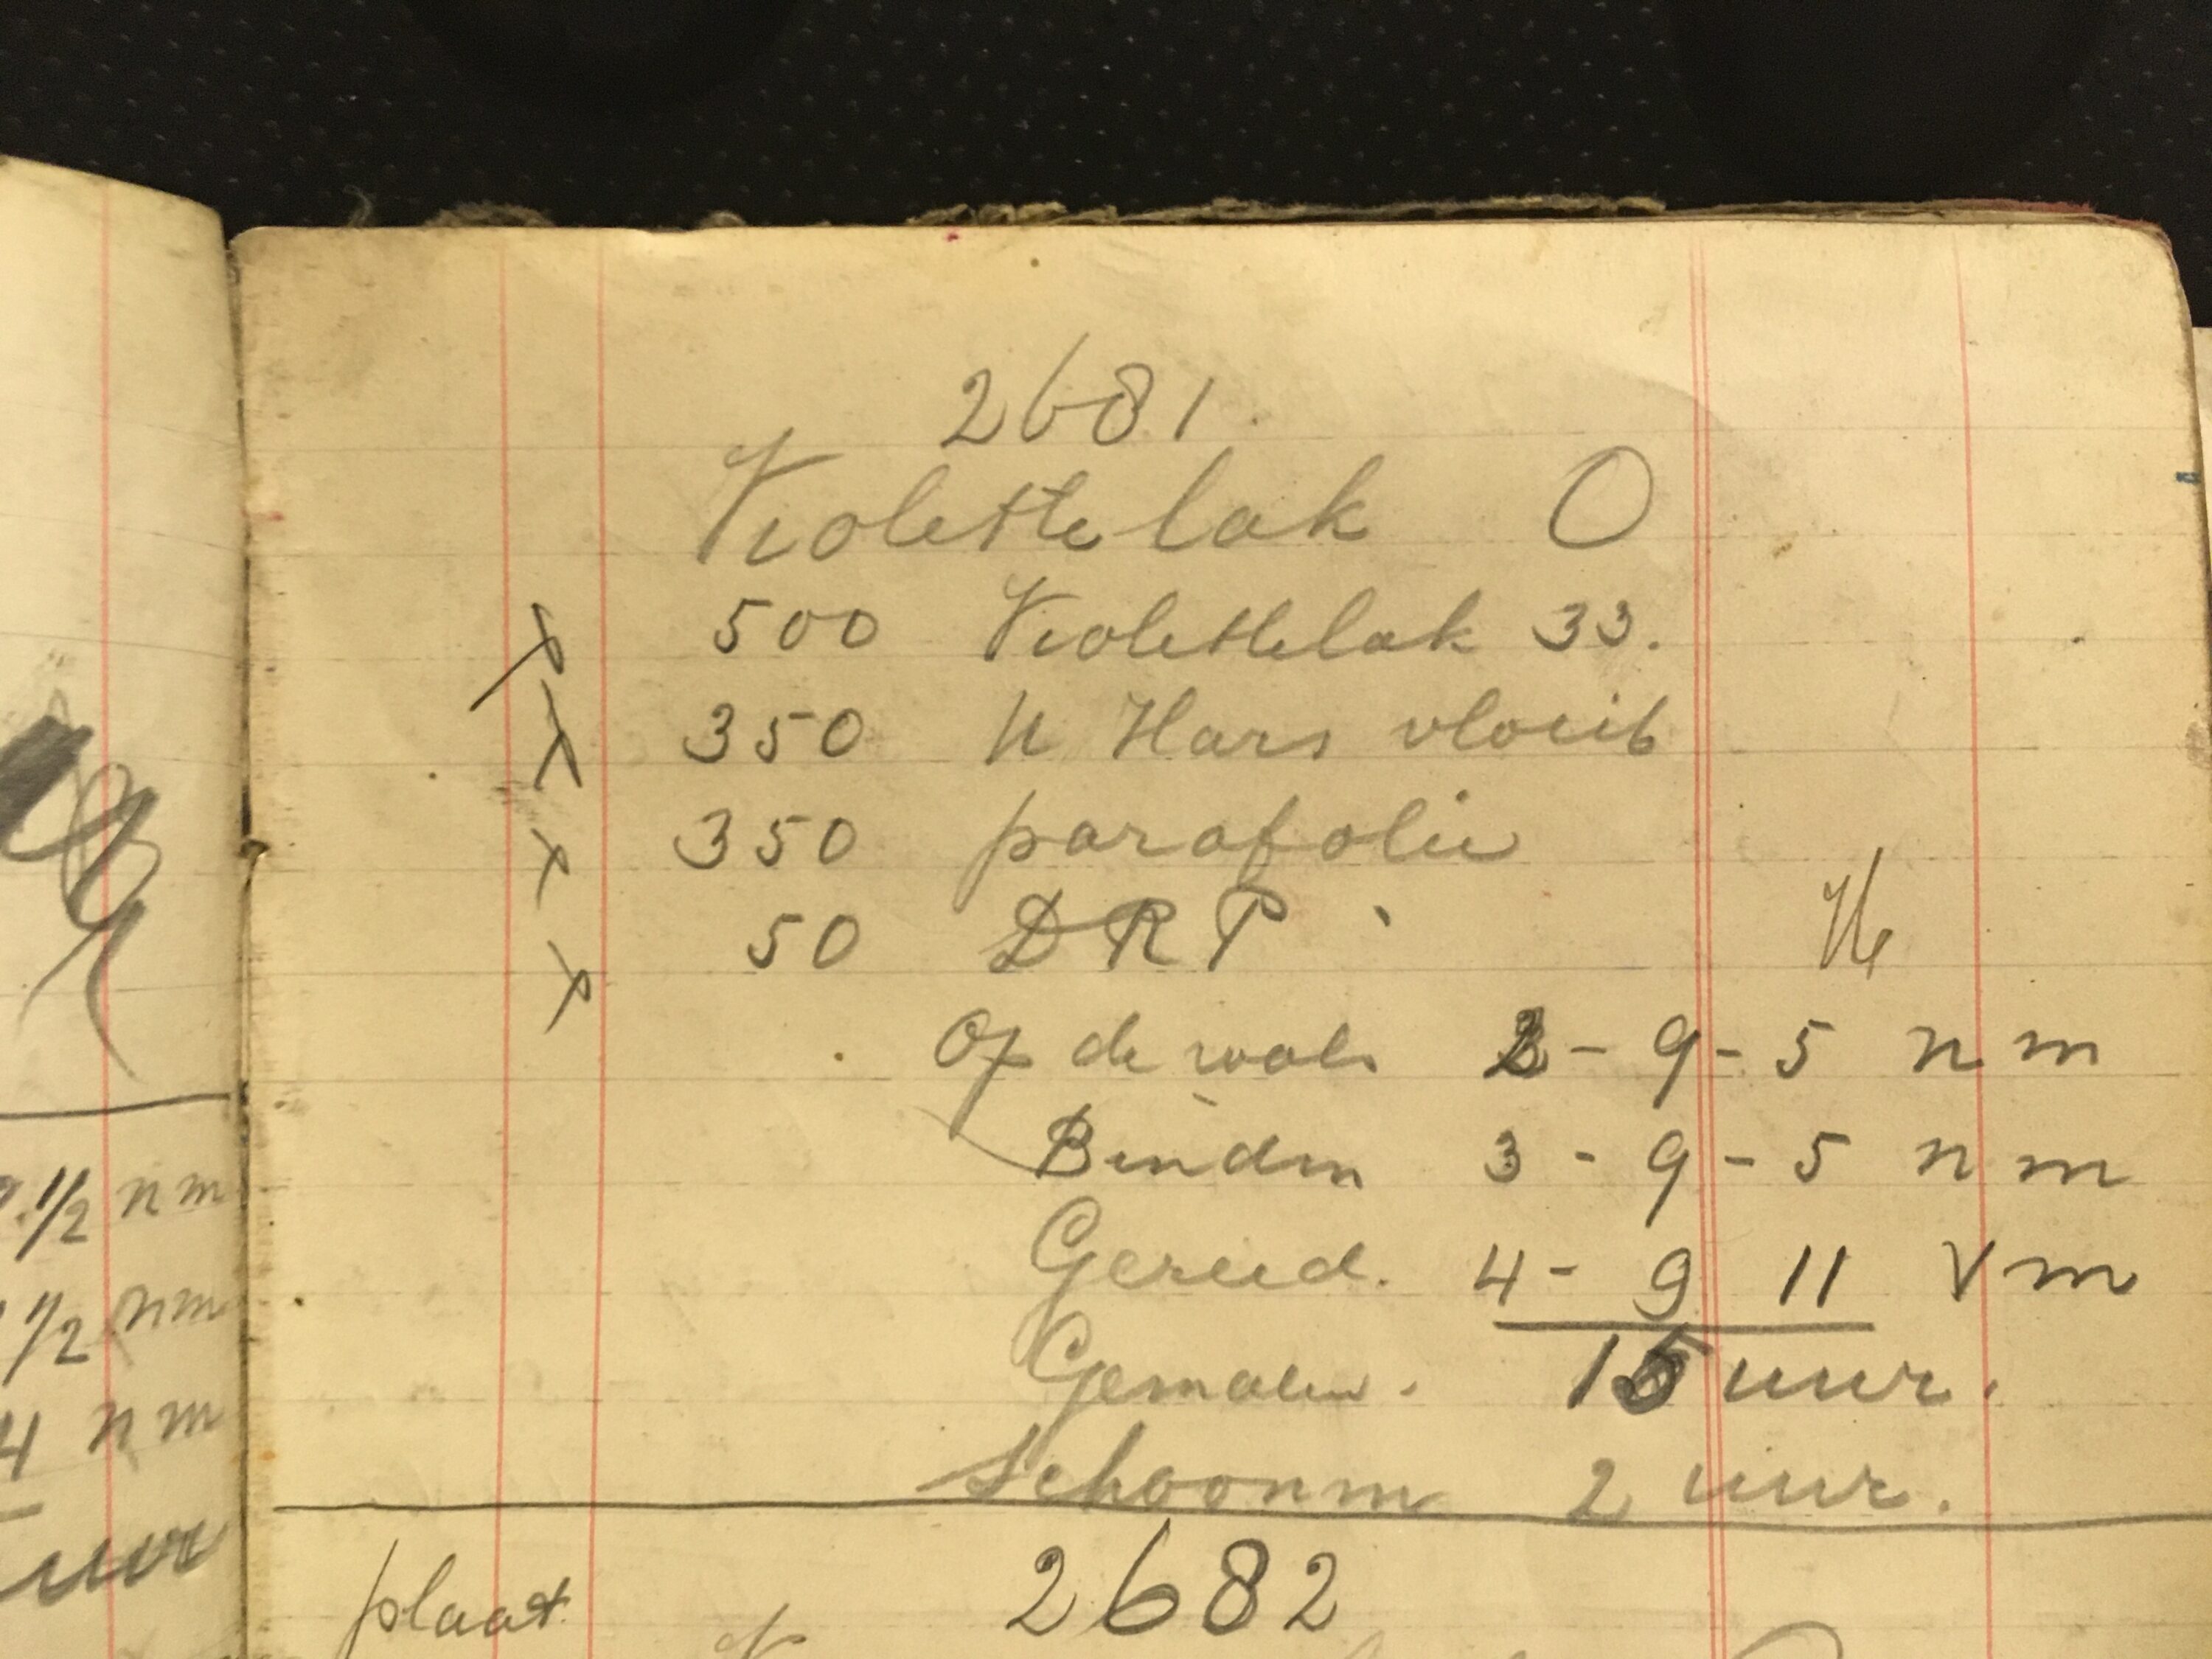 1/2 nm
1/2 nm
4 nm
uur
2681.
Violette lak O
500 Violettelak 33.
350 H Hars vloeib
350 parafolie
50 DRP
Op de wals 3 - 9 - 5 nm
Binden 3 - 9 - 5 nm
Gereed. 4 - 9 11 Vm
Gemalen. 15 uur.
Schoonm 2 uur.
plaat 2682